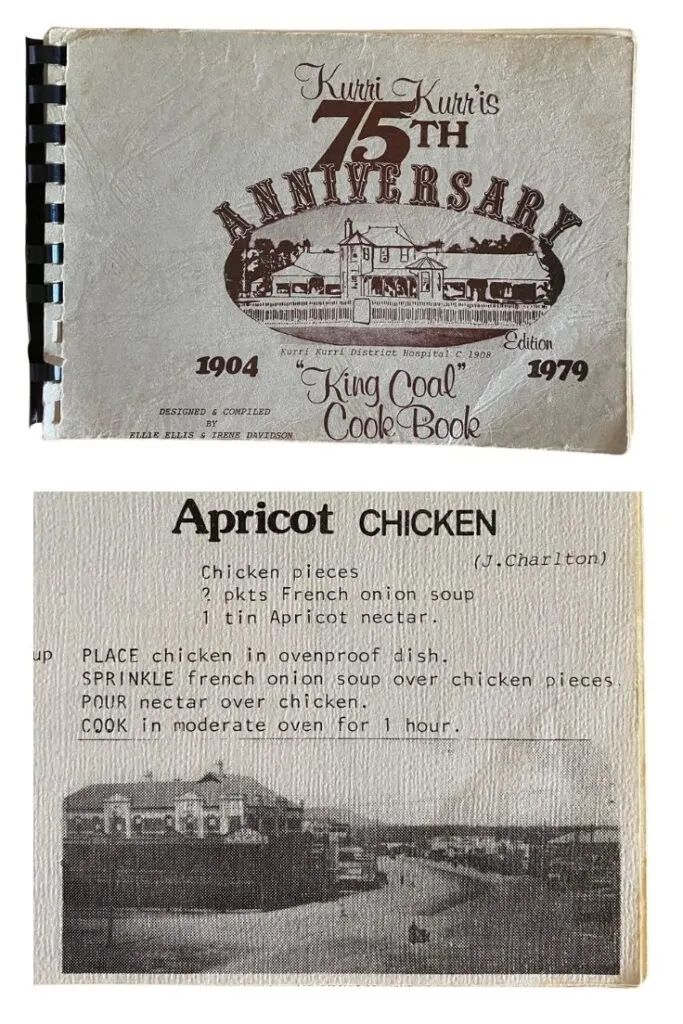 Kurri Kurr'is
75TH
ANNIVERSARY
Edition
Kurri Kurri District Hospital C. 1908
1904
1979
"King Coal"
Cook Book
DESIGNED & COMPILED
BY
ELLIE ELLIS & IRENE DAVIDSON
Apricot CHICKEN
(J.Charlton)
Chicken pieces
2 pkts French onion soup
1 tin Apricot nectar.
up
PLACE chicken in ovenproof dish.
SPRINKLE french onion soup over chicken pieces.
POUR nectar over chicken.
COOK in moderate oven for 1 hour.